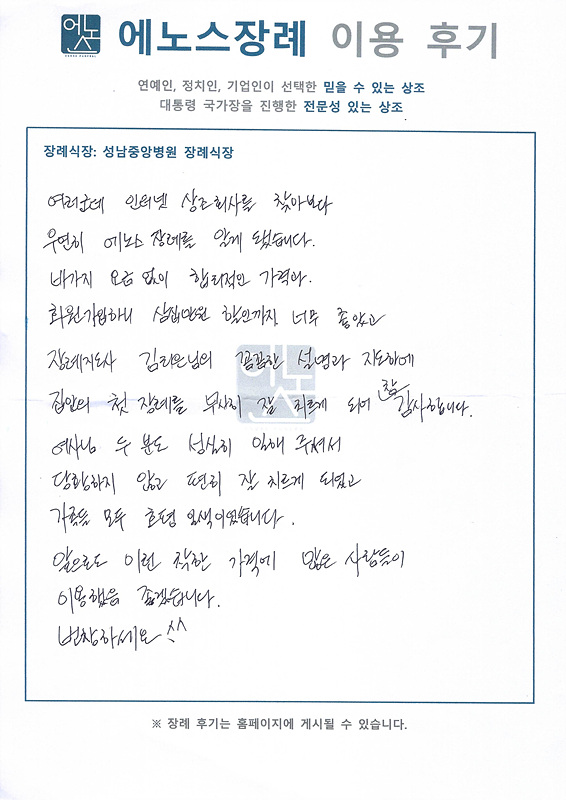 에노스
에노스장례 이용 후기
연예인, 정치인, 기업인이 선택한 믿을 수 있는 상조
대통령 국가장을 진행한 전문성 있는 상조
장례식장: 성남중앙병원 장례식장
여러군데 인터넷 상조회사를 찾아보다
우연히 에노스 장례를 알게 됐습니다.
바가지 요금 없이 합리적인 가격과.
회원가입하니 삼십만원 할인까지 너무 좋았고
장례지도사 님의 꼼꼼한 설명과 지도하에
집안의 첫 장례를 무사히 잘 치르게 되어 참 감사합니다.
여사님 두 분도 성심히 일해 주셔서
당황하지 않고 편히 잘 치르게 되었고
가족들 모두 호평 일색이었습니다.
앞으로도 이런 착한 가격에 많은 사람들이
이용했음 좋겠습니다.
번창하세요 ^^
※ 장례 후기는 홈페이지에 게시될 수 있습니다.